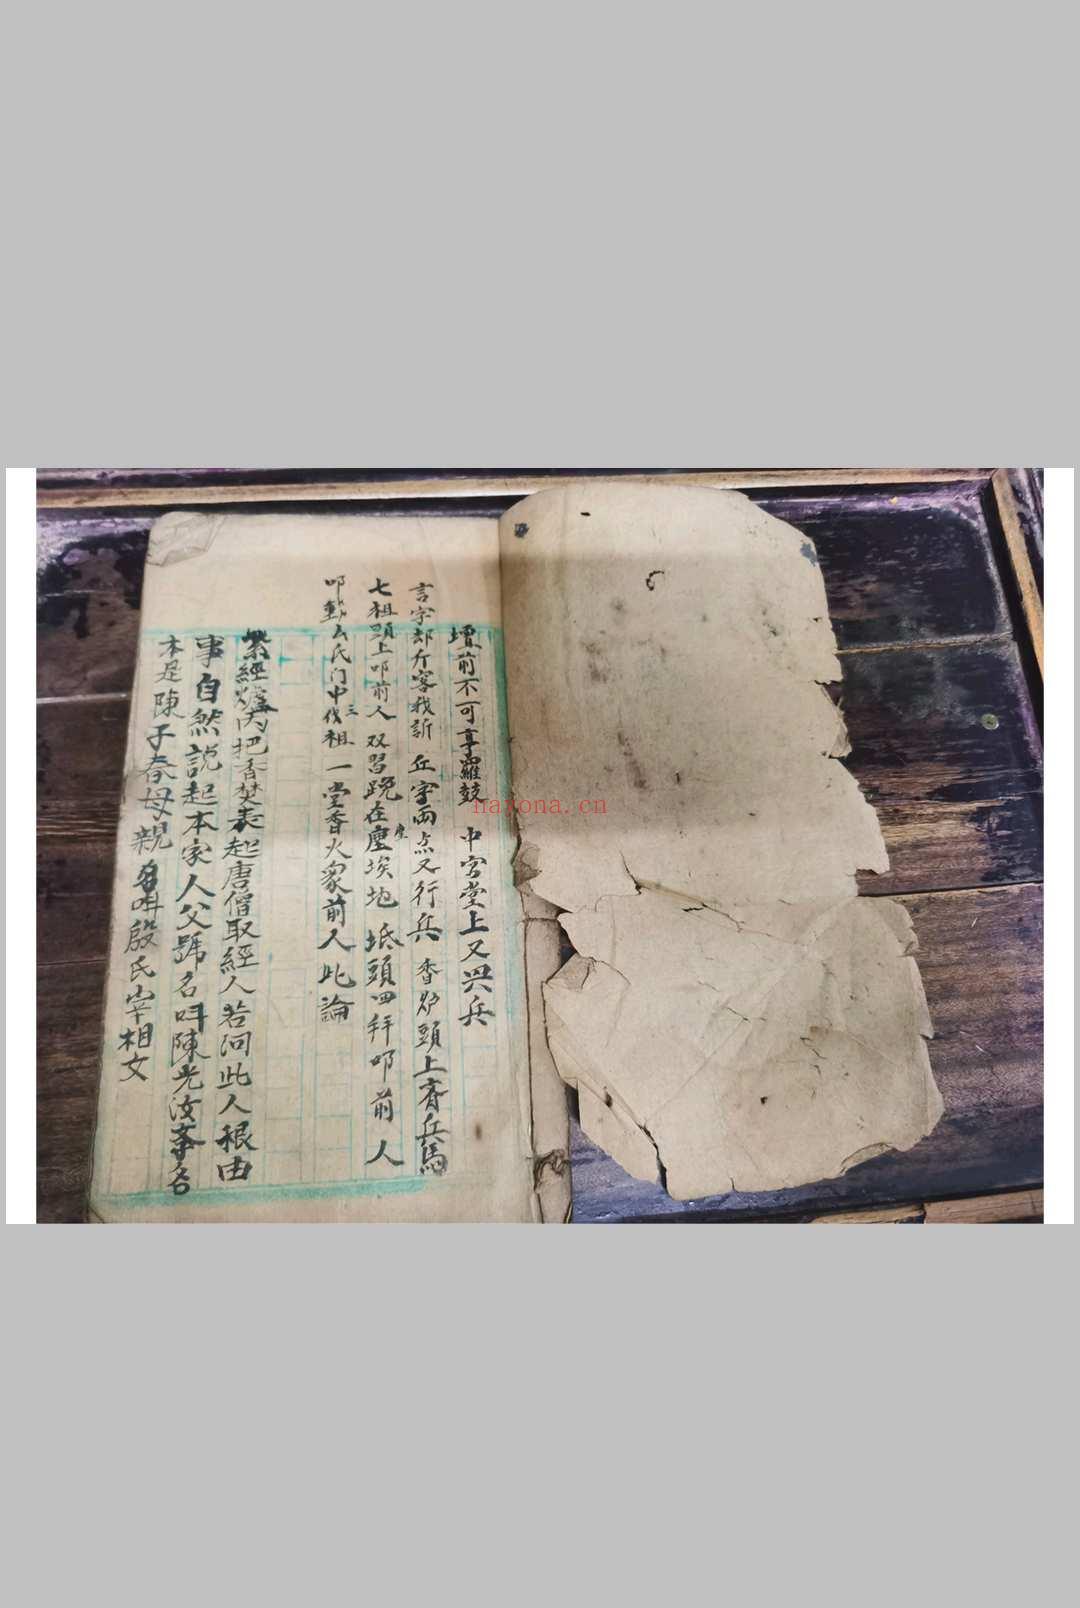 壇前不可享羅鼓 中宮堂上又兴兵
言字却斤容我訴 丘 兩点又行兵 香炉頭上齊兵馬
七祖頭上叩前人 双習跪在塵埃地 坻頭四拜叩前人
叩動 氏门中三代祖 一堂香火衆前人 此論
經爐内把香焚 表起唐僧取經人 若问此人根由
事自然説起本家人 父號名叫陳光汝 爹名
本是陳子春 母親名叫殷氏 宰相文
nayona.cn